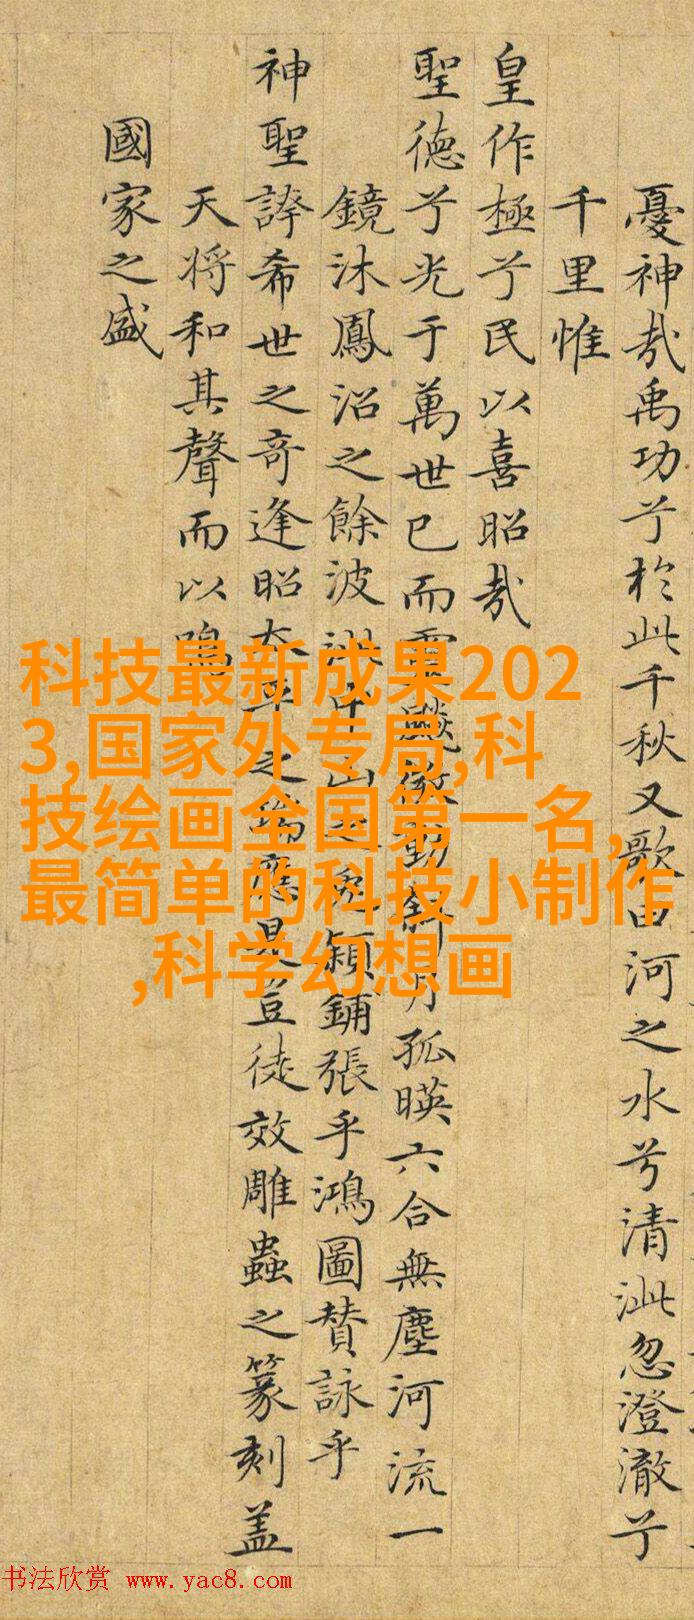 憂神哉禹功兮於此千秋又歌曰河之水兮清泚忽澄澈兮
千里惟
皇作極兮民以喜昭哉
聖德兮光于萬世已而靈飈微動新月孤暎六合無塵河流一
鏡沐鳳沼之餘波中山之穎鋪張乎鴻圖賛詠乎
神聖誇希世之奇逢昭太平之瑞應是豈徒效雕蟲之篆刻盖
天将和其聲而以鳴
國家之盛
科技最新成果202
3,国家外专局,科
技绘画全国第一名,
最简单的科技小制作
,科学幻想画
书法欣赏 www.yac8.com